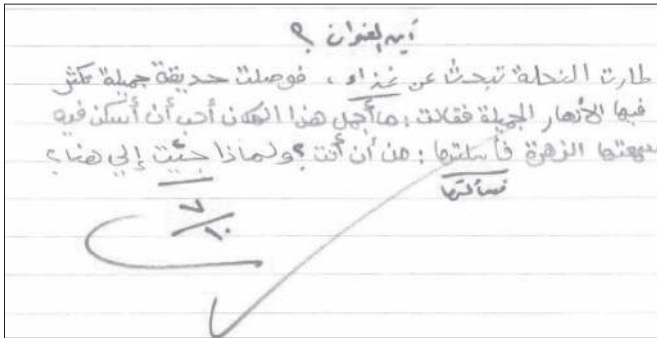 أين العنوان ؟
طارت النحلة تبحث عن غذاء ، فوصلت حديقة جميلة تكثر
فيها الأزهار الجميلة فقالت : ما أجمل هذا المكان أحب أن أسكن فيه
سمعتها الزهرة فأسلتها : من أن أنت ؟ ولماذا جئت إلي هنا ؟
فسألتها
٧
١٠